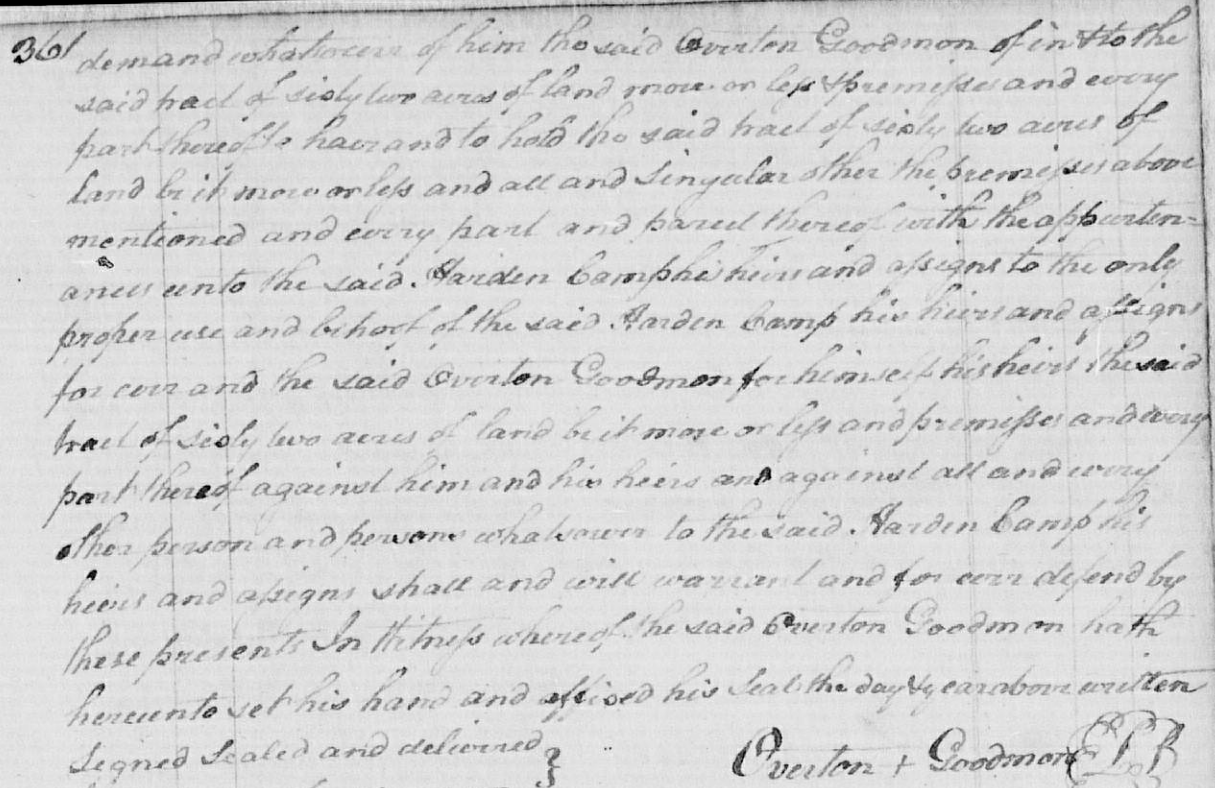 361 demand whatsoever of him the said Overton Goodmon of in & to the
said tract of sixty two acres of land more or less & premisses and every
part thereof to have and to hold the said tract of sixty two acres of
land be it more or less and all and Singular other the premisses above
mentioned and every part and parcel thereof with the appurten=
ances unto the said Harden Camp his heirs and assigns to the only
proper use and behoof of the said Harden Camp his heirs and assigns
for ever and the said Overton Goodmon for himself his heirs the said
tract of sixty two acres of land be it more or less and premisses and every
part thereof against him and his heirs and against all and every
other person and persons whatsoever to the said Harden Camp his
heirs and assigns shall and will warrant and for ever defend by
these presents In Witness whereof the said Overton Goodmon hath
hereunto set his hand and affixed his Seal the day & year above written
Signed Sealed and delivered }
Overton + Goodmon